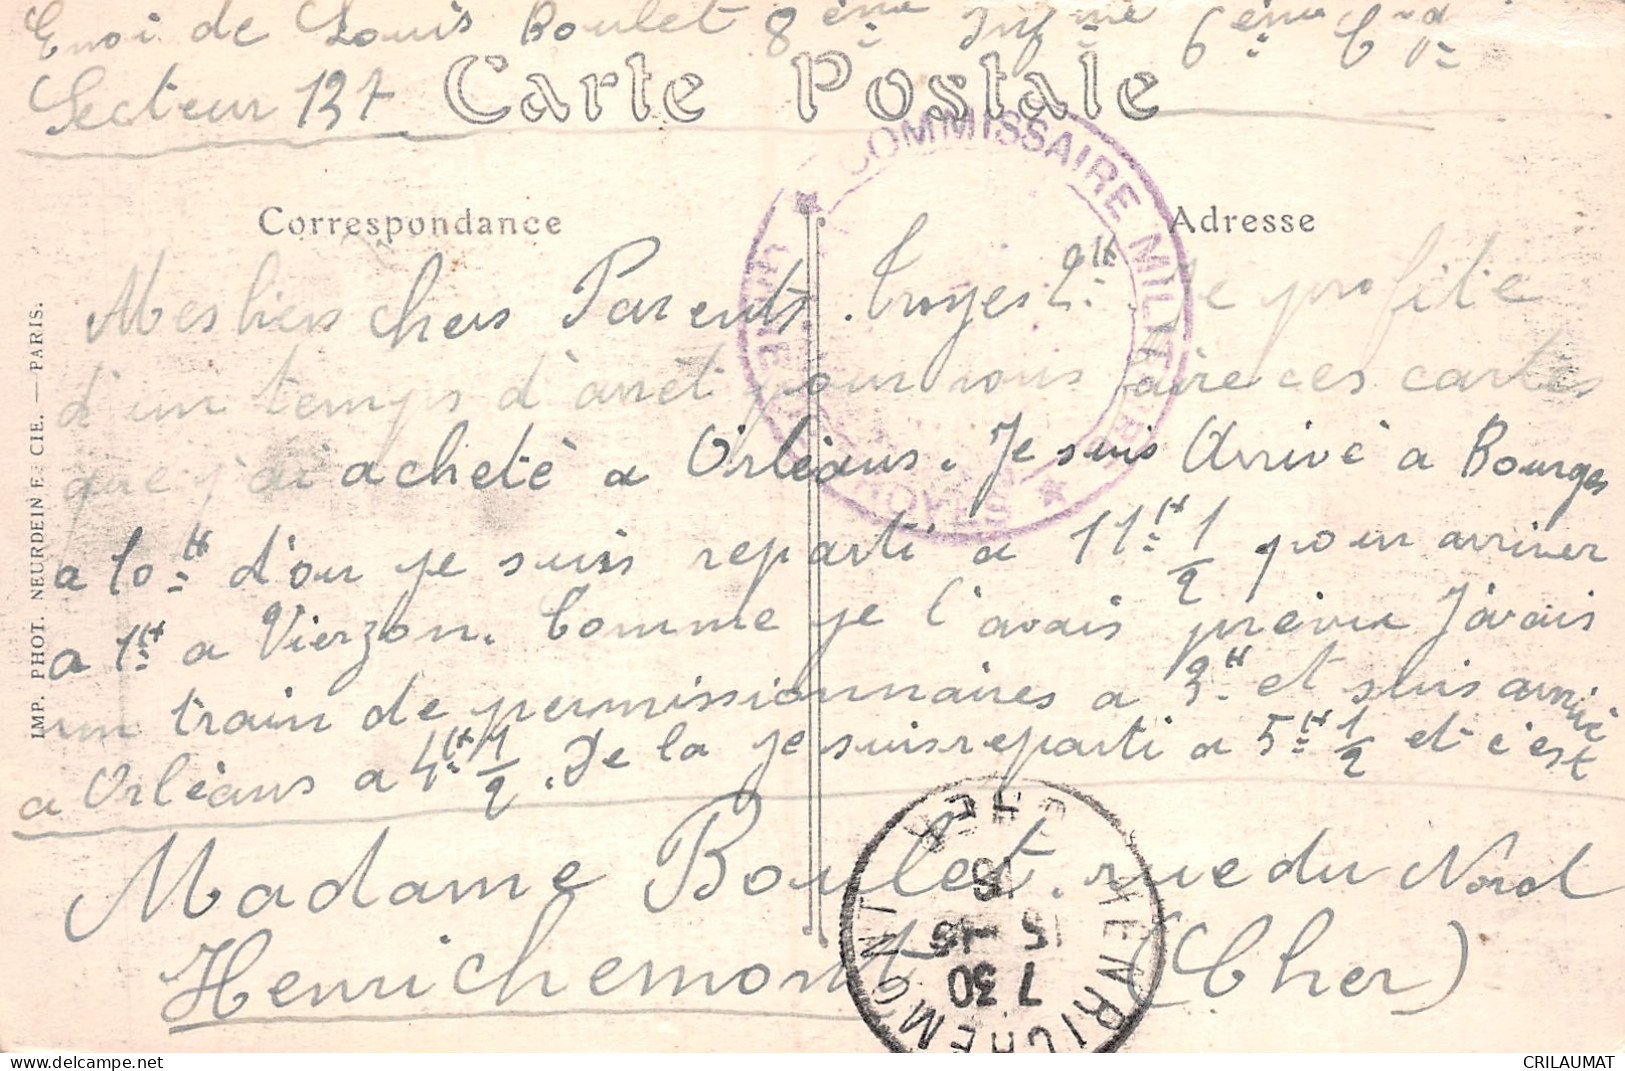 Envoi de Louis Boulet 8ème Infme 6ème
Secteur 137
Carte Postale
Correspondance
Adresse
COMMISSAIRE MILITAIRE
GARE TROYES
IMP. PHOT. NEURDEIN ET CIE. — PARIS.
Mes biens chers Parents. Troyes 2H. Je profite
d'un temps d'arrêt pour vous faire ces cartes
que j'ai acheté a Orléans. Je suis Arrivé a Bourges
a 10H d'ou je suis reparti a 11H 1/2 pour arriver
a 1H a Vierzon. Comme je l'avais prévu J'avais
un train de permissionnaires a 3H et suis arrivé
a Orléans a 4H 1/2. De la je suis reparti a 5H 1/2 et c'est
Madame Boulet. rue du Nord
Henrichemont (Cher)
HENRICHEMONT
CHER
7 30
15 -5
16
CRILAUMAT